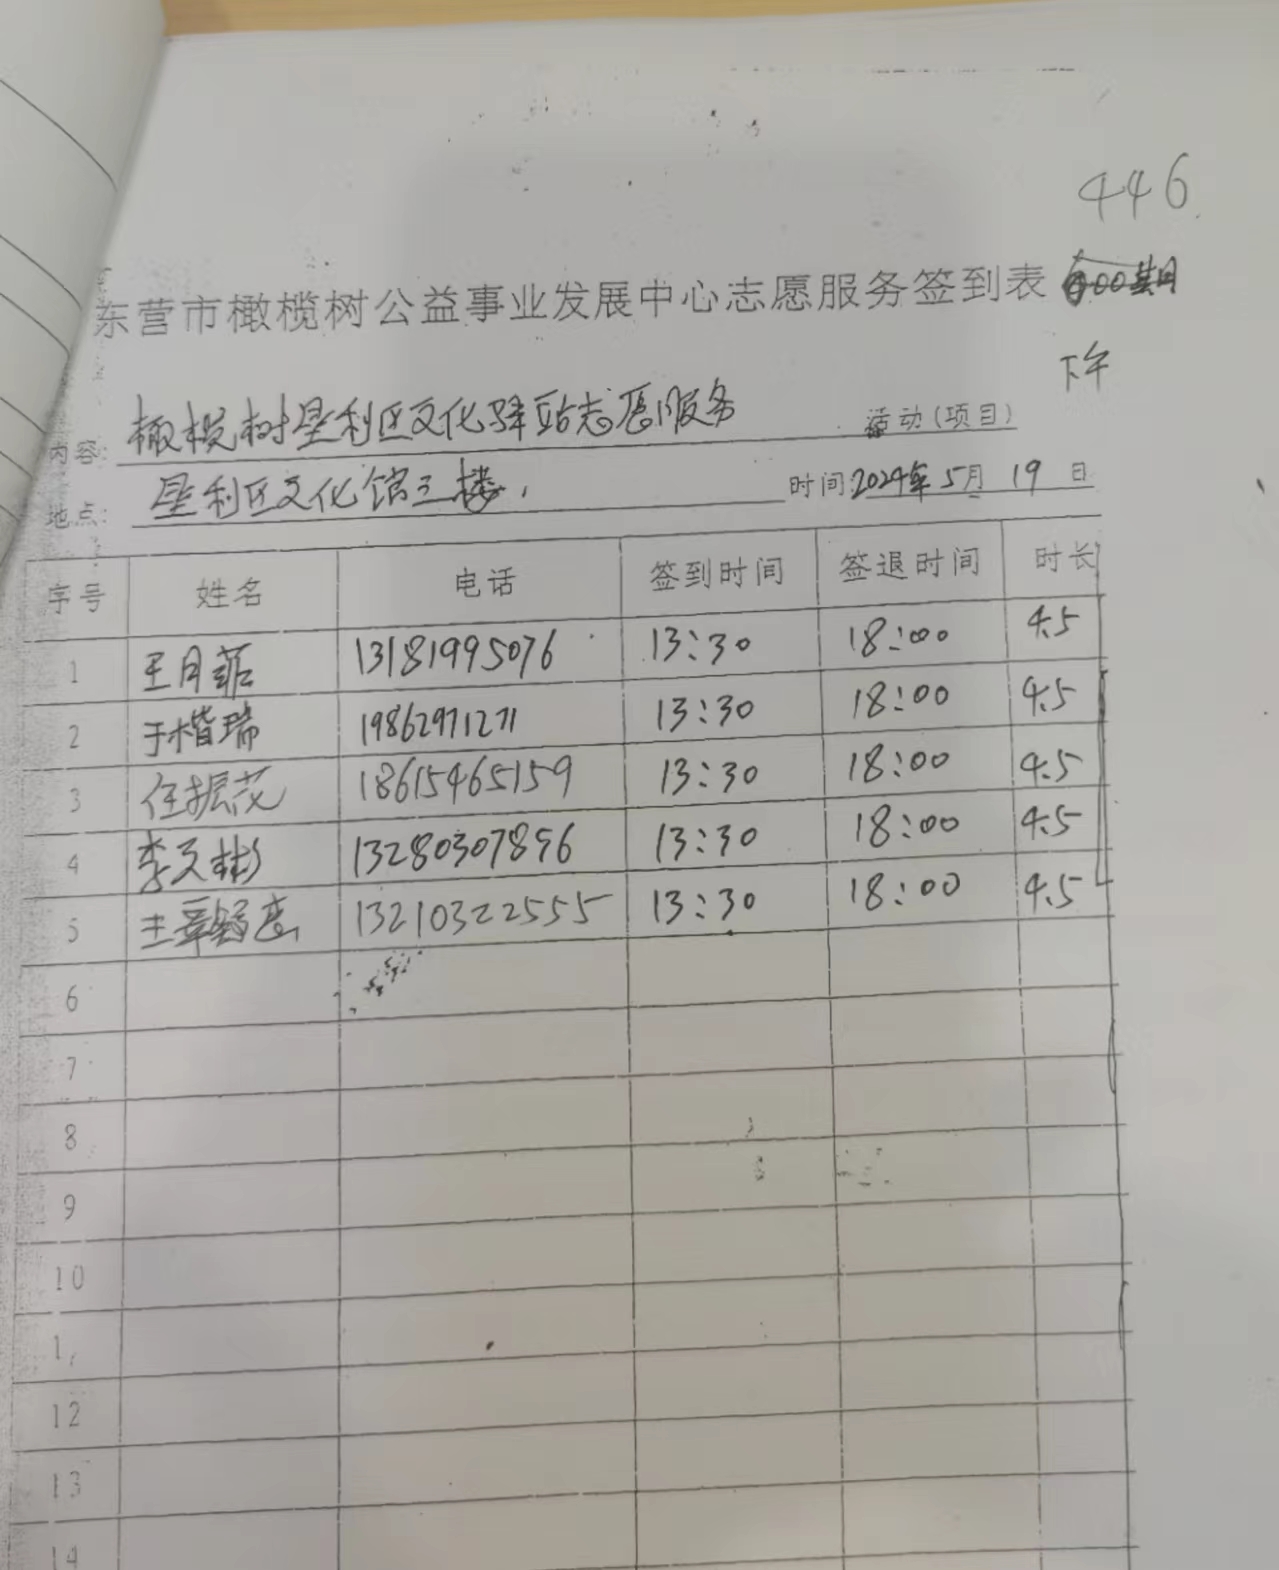 446
东营市橄榄树公益事业发展中心志愿服务签到表
下午
内容: 橄榄树垦利区文化驿站志愿服务 活动(项目)
地点: 垦利区文化馆三楼. 时间2024年5月19日
序号 姓名 电话 签到时间 签退时间 时长
1 王月菇 13181995076 13:30 18:00 4.5
2 于楷瑞 19862971271 13:30 18:00 4.5
3 任振茂 18615465159 13:30 18:00 4.5
4 李文彬 13280307896 13:30 18:00 4.5
5 13210322555 13:30 18:00 4.5
6
7
8
9
10
12
13
14